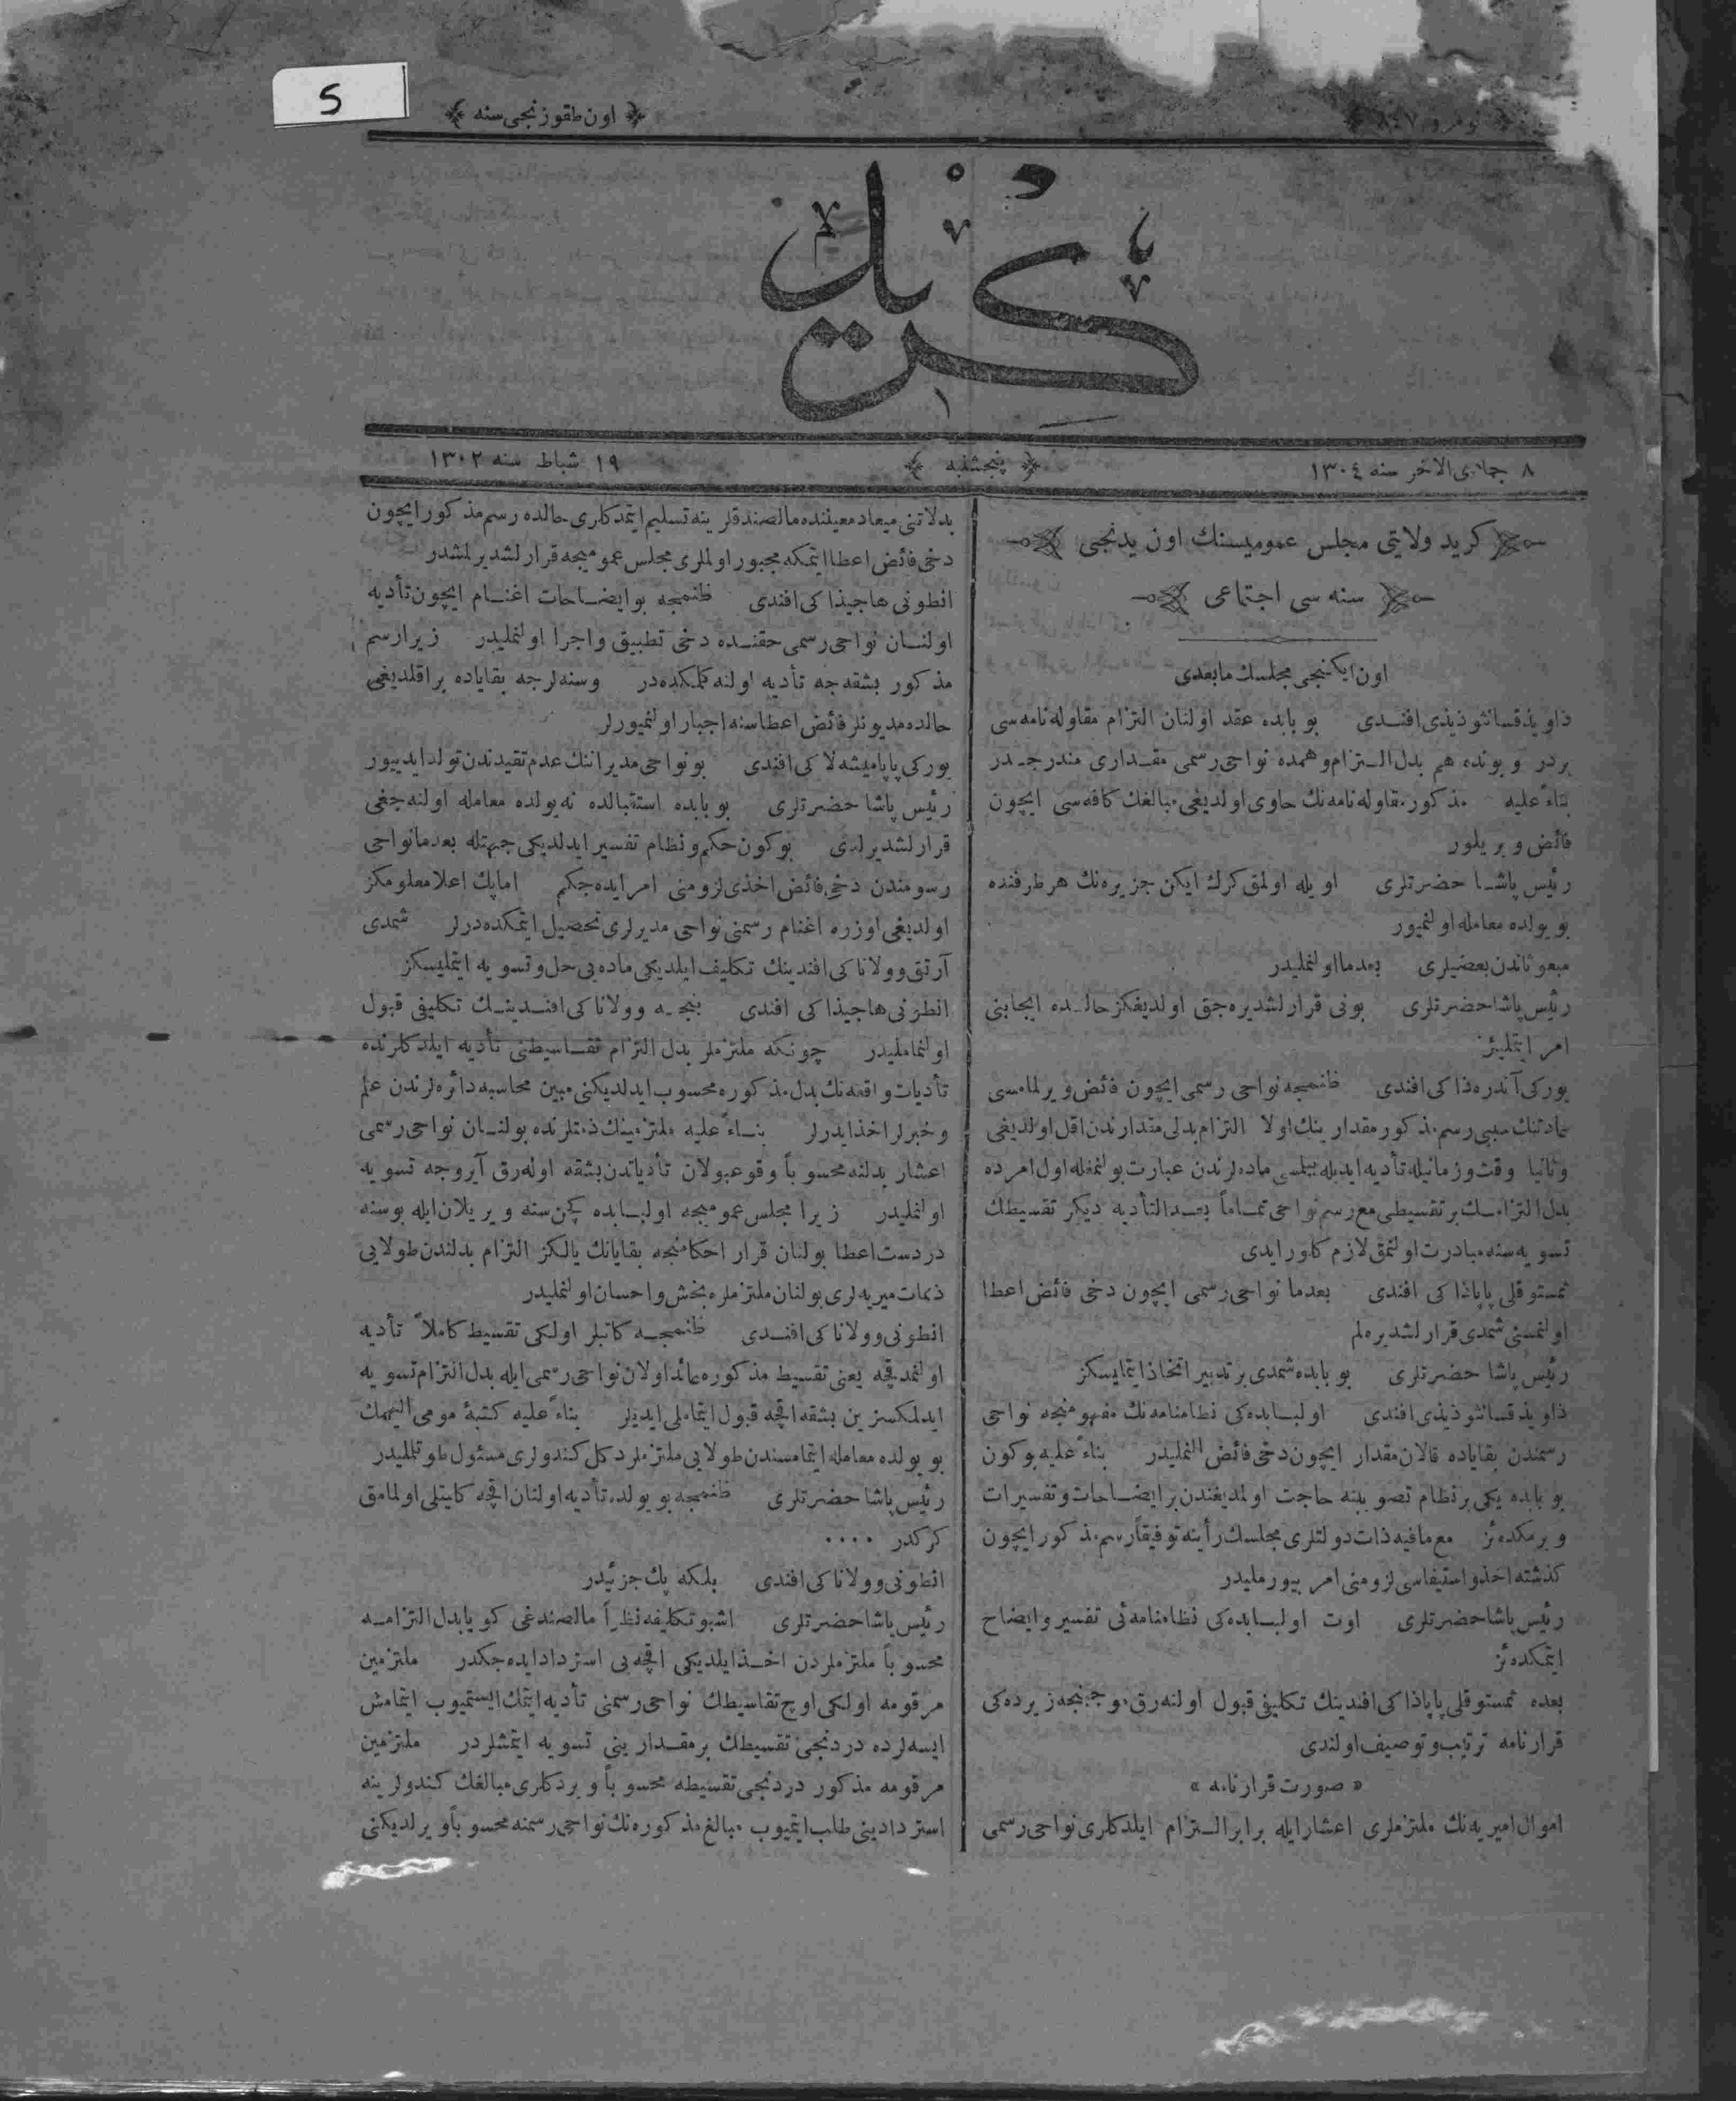 5
نومرو ٨٤٧
اون طقوزنجی سنه
كريد
٨ جماذی الاخر سنه ١٣٠٤
پنجشنبه
١٩ شباط سنه ١٣٠٢
كريد ولایتی مجلس عمومیسنك اون یدنجی
سنه سی اجتماعی
اون ایكنجی مجلسك مابعدی
ذاویذ قسانثوذیذی افندی بو بابده عقد اولنان التزام مقاوله نامه سی
بردر و بونده هم بدل التزام و همده نواحی رسمی مقداری مندرجدر
بناءً علیه مذكور مقاوله نامه نك حاوی اولدیغی مبالغك كافه سی ایچون
فائض ویریلور
رئیس پاشا حضرتلری اویله اولمق كرك ایكن جزیره نك هر طرفنده
بو یولده معامله اولنمیور
مبعوثاندن بعضیلری بعدما اولنملیدر
رئیس پاشا حضرتلری بونی قرارلشدیره جق اولدیغكز حالده ایجابنی
امر ایتملیز
یوركی آندره ذاكی افندی ظنمجه نواحی رسمی ایچون فائض ویرلمامسی
عادتنك سببی رسم مذكور مقدارینك اولا التزام بدلی مقدارندن اقل اولدیغی
وثانیا وقت وزمانیله تأدیه ایدیله بیلمسی ماده لرندن عبارت بولنمغله اول امرده
بدل التزامك بر تقسیطی مع رسم نواحی تماماً بعد التأدیه دیكر تقسیطك
تسویه سنه مبادرت اولنمق لازم كلور ایدی
ثمستوقلی پاپاذاكی افندی بعدما نواحی رسمی ایچون دخی فائض اعطا
اولنمسنی شمدی قرارلشدیره لم
رئیس پاشا حضرتلری بو بابده شمدی بر تدبیر اتخاذ ایتملیسكز
ذاویذ قسانثوذیذی افندی اولبابده كی نظامنامه نك مفهومنجه نواحی
رسمندن بقایاده قالان مقدار ایچون دخی فائض النملیدر بناءً علیه بوكون
بو بابده یكی بر نظام تصویبنه حاجت اولمدیغندن بر ایضاحات و تفسیرات
ویرمكده ئز مع مافیه ذات دولتلری مجلسك رأینه توفیقاً رسم مذكور ایچون
كذشته اخذ و استیفاسی لزومنی امر بیورملیدر
رئیس پاشا حضرتلری اوت اولبابده كی نظامنامه ئی تفسیر و ایضاح
ایتمكده ئز
بعده ثمستوقلی پاپاذاكی افندینك تكلیفی قبول اولنه رق موجبنجه زیرده كی
قرارنامه ترتیب و توصیف اولندی
« صورت قرارنامه »
اموال امیریه نك ملتزملری اعشار ایله برابر التزام ایلدكلری نواحی رسمی
بدلاتنی میعاد معیننده مال صندقلرینه تسلیم ایتمدكلری حالده رسم مذكور ایچون
دخی فائض اعطا ایتمكه مجبور اولملری مجلس عمومیجه قرارلشدیرلمشدر
انطونی هاجیذاكی افندی ظنمجه بو ایضاحات اغنام ایچون تأدیه
اولنان نواحی رسمی حقنده دخی تطبیق و اجرا اولنملیدر زیرا رسم
مذكور بشقه جه تأدیه اولنه كلمكده در و سنه لرجه بقایاده براقلدیغی
حالده مدیونلر فائض اعطاسنه اجبار اولنمیورلر
یوركی پاپامیشه لاكی افندی بو نواحی مدیرانك عدم تقیدندن تولد ایدییور
رئیس پاشا حضرتلری بو بابده استقبالده نه یولده معامله اولنه جغی
قرارلشدیرلدی بوكون حكم و نظام تفسیر ایدلدیكی جهتله بعدما نواحی
رسومندن دخی فائض اخذی لزومنی امر ایده جكم اما پك اعلا معلومكز
اولدیغی اوزره اغنام رسمنی نواحی مدیرلری تحصیل ایتمكده درلر شمدی
آرتق وولاناكی افندینك تكلیف ایلدیكی ماده یی حل و تسویه ایتملیسكز
انطونی هاجیذاكی افندی بنجه وولاناكی افندینك تكلیفی قبول
اولنماملیدر چونكه ملتزملر بدل التزام تقاسیطنی تأدیه ایلدكلرنده
تأدیات واقعه نك بدل مذكوره محسوب ایدلدیكنی مبین محاسبه دائره لرندن علم
و خبرلر اخذ ایدرلر بناءً علیه ملتزمینك ذمتلرنده بولنان نواحی رسمی
اعشار بدلنه محسوباً وقوعبولان تأدیاتدن بشقه اوله رق آیروجه تسویه
اولنملیدر زیرا مجلس عمومیجه اولبابده كچن سنه ویریلان ایله بو سنه
دردست اعطا بولنان قرار احكامنجه بقایانك یالكز التزام بدلندن طولایی
ذمات میریه لری بولنان ملتزملره بخش و احسان اولنملیدر
انطونی وولاناكی افندی ظنمجه كاتبلر اولكی تقسیط كاملاً تأدیه
اولنمدقچه یعنی تقسیط مذكوره عائد اولان نواحی رسمی ایله بدل التزام تسویه
ایدلمكسزین بشقه اقچه قبول ایتماملی ایدیلر بناءً علیه كتبۀ مومی الیهمك
بو یولده معامله ایتمامسندن طولایی ملتزملر دكل كندولری مسئول طوتلملیدر
رئیس پاشا حضرتلری ظنمجه بو یولده تأدیه اولنان اقچه كلیتلی اولمامق
كركدر ....
انطونی وولاناكی افندی بلكه پك جزئیدر
رئیس پاشا حضرتلری اشبو تكلیفه نظراً مال صندغی كویا بدل التزامه
محسوباً ملتزملردن اخذ ایلدیكی اقچه یی استرداد ایده جكدر ملتزمین
مرقومه اولكی اوچ تقاسیطك نواحی رسمنی تأدیه ایتمك ایستمیوب ایتمامش
ایسه لرده دردنجی تقسیطك بر مقدارینی تسویه ایتمشلردر ملتزمین
مرقومه مذكور دردنجی تقسیطه محسوباً ویردكلری مبالغك كندولرینه
استردادینی طلب ایتمیوب مبالغ مذكوره نك نواحی رسمنه محسوباً ویرلدیكنی